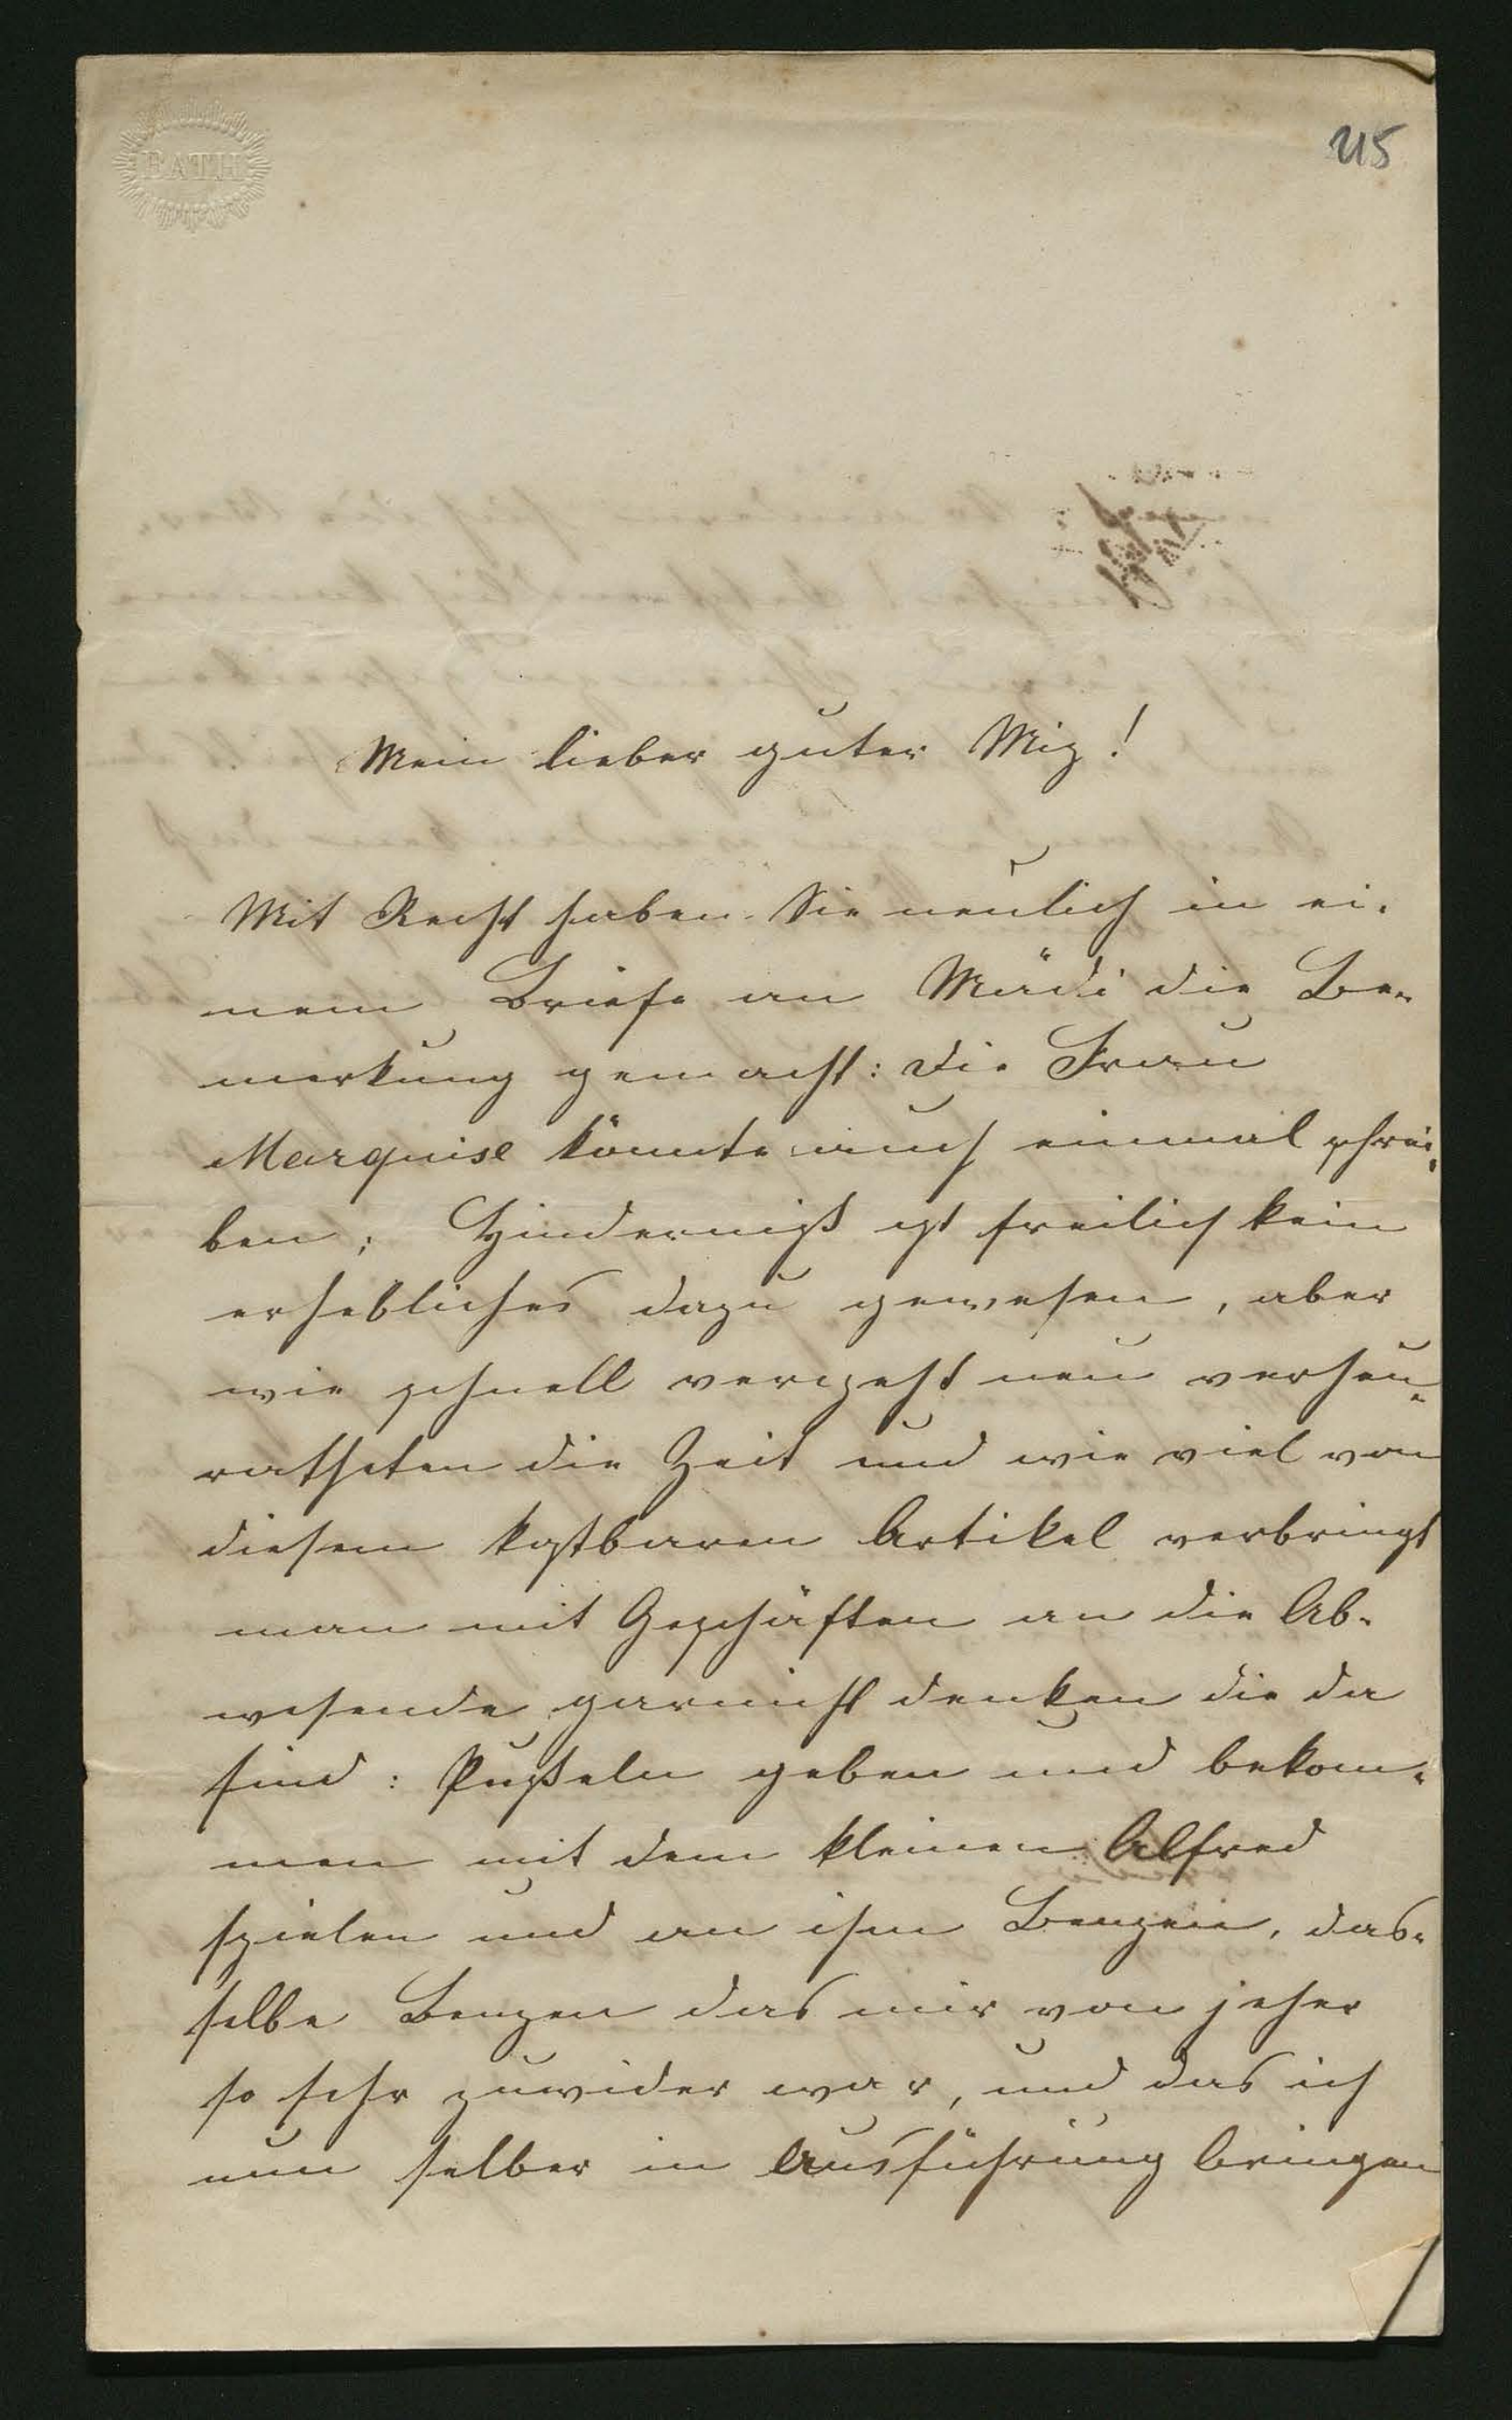 BATH
215
Mein lieber guter Miz!
Mit Recht haben Sie neulich in ei-
nem Briefe an Mädi die Be-
merkung gemacht: die Frau
Marquise könnte auch einmal schrei-
ben; Hinderniß ist freilich kein
erhebliches dazu gewesen, aber
wie schnell vergeht neu verheu-
ratheten die Zeit und wie viel von
diesem kostbaren Artikel verbringt
man mit Geschäften an die Ab-
wesende garnicht denken die da
sind: Pußeln geben und bekom-
men mit dem kleinen Alfred
spielen und an ihm Benzen, das-
selbe Benzen das mir von jeher
so sehr zuwider war, und das ich
nun selber in Ausführung bringen